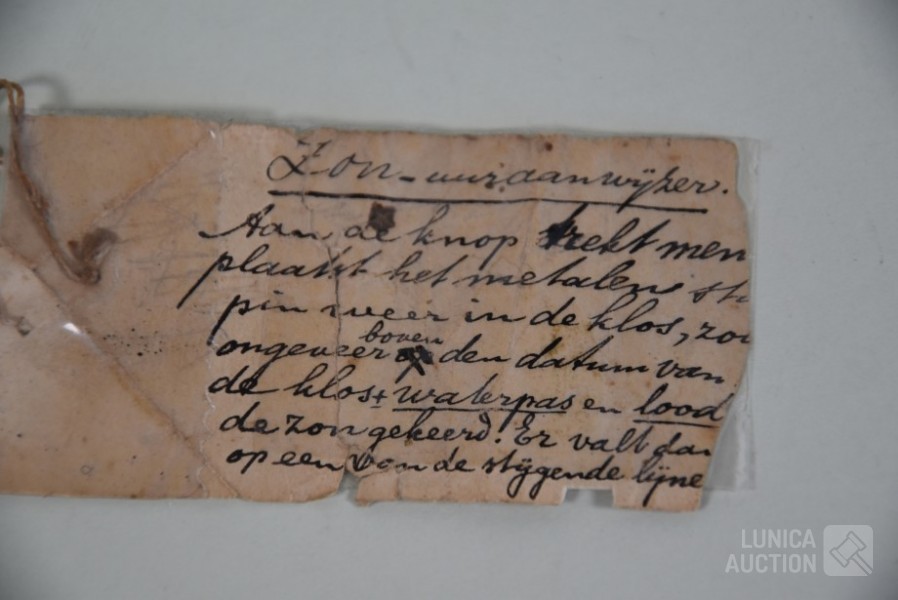 Zon-uuraanwyzer.
Aan de knop trekt men
plaatst het metalen
pin weer in de klos,
boven
ongeveer den datum van
de klos ± waterpas en lood
de zon gekeerd. Er valt dan
op een van de stygende lyne
LUNICA
AUCTION